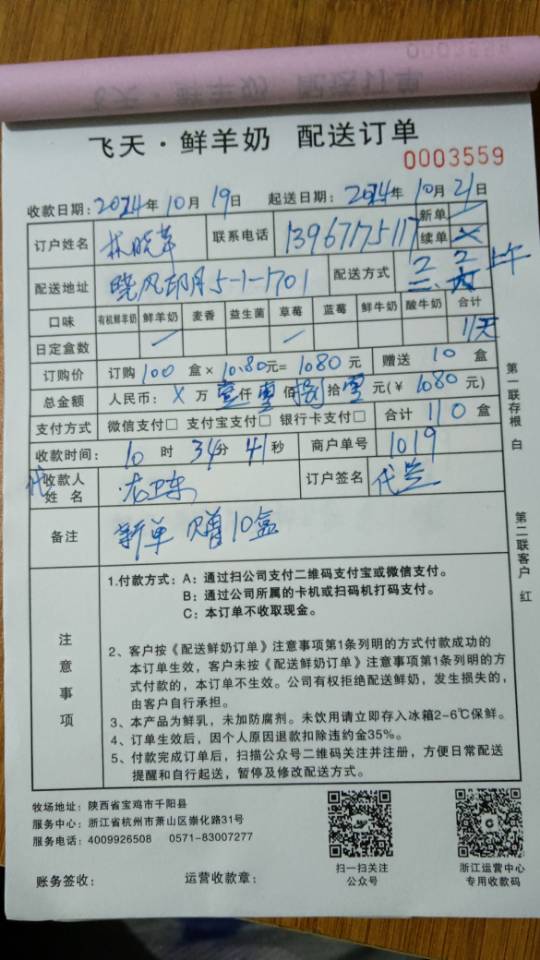 飞天·鲜羊奶 配送订单
0003559
收款日期：2024年10月19日 起送日期：2024年10月21日
订户姓名 林晓萍 联系电话 13967175117 新单 续单
配送地址 晓风印月5-1-1701 配送方式 上午
口味 有机鲜羊奶 鲜羊奶 麦香 益生菌 草莓 蓝莓 鲜牛奶 酸牛奶 合计
日定盒数 1/天
订购价 订购100盒×10.80元=1080元 赠送10盒
总金额 人民币：×万壹仟零佰捌拾零元(￥1080元)
支付方式 微信支付□ 支付宝支付□ 银行卡支付□ 合计110盒
收款时间：10时34分41秒 商户单号 1019
代
收款人姓名 订户签名
备注 新单 赠10盒
注意事项
1.付款方式：A：通过扫公司支付二维码支付宝或微信支付。
B：通过公司所属的卡机或扫码机打码支付。
C：本订单不收取现金。
2、客户按《配送鲜奶订单》注意事项第1条列明的方式付款成功的
本订单生效，客户未按《配送鲜奶订单》注意事项第1条列明的方
式付款的，本订单不生效。公司有权拒绝配送鲜奶，发生损失的，
由客户自行承担。
3、本产品为鲜乳，未加防腐剂。未饮用请立即存入冰箱2-6℃保鲜。
4、订单生效后，因个人原因退款扣除违约金35%。
5、付款完成订单后，扫描公众号二维码关注并注册，方便日常配送
提醒和自行起送，暂停及修改配送方式。
第一联存根 白
第二联客户 红
牧场地址：陕西省宝鸡市千阳县
服务中心：浙江省杭州市萧山区崇化路31号
服务电话：4009926508 0571-83007277
扫一扫关注
公众号
浙江运营中心
专用收款码
账务签收： 运营收款章：